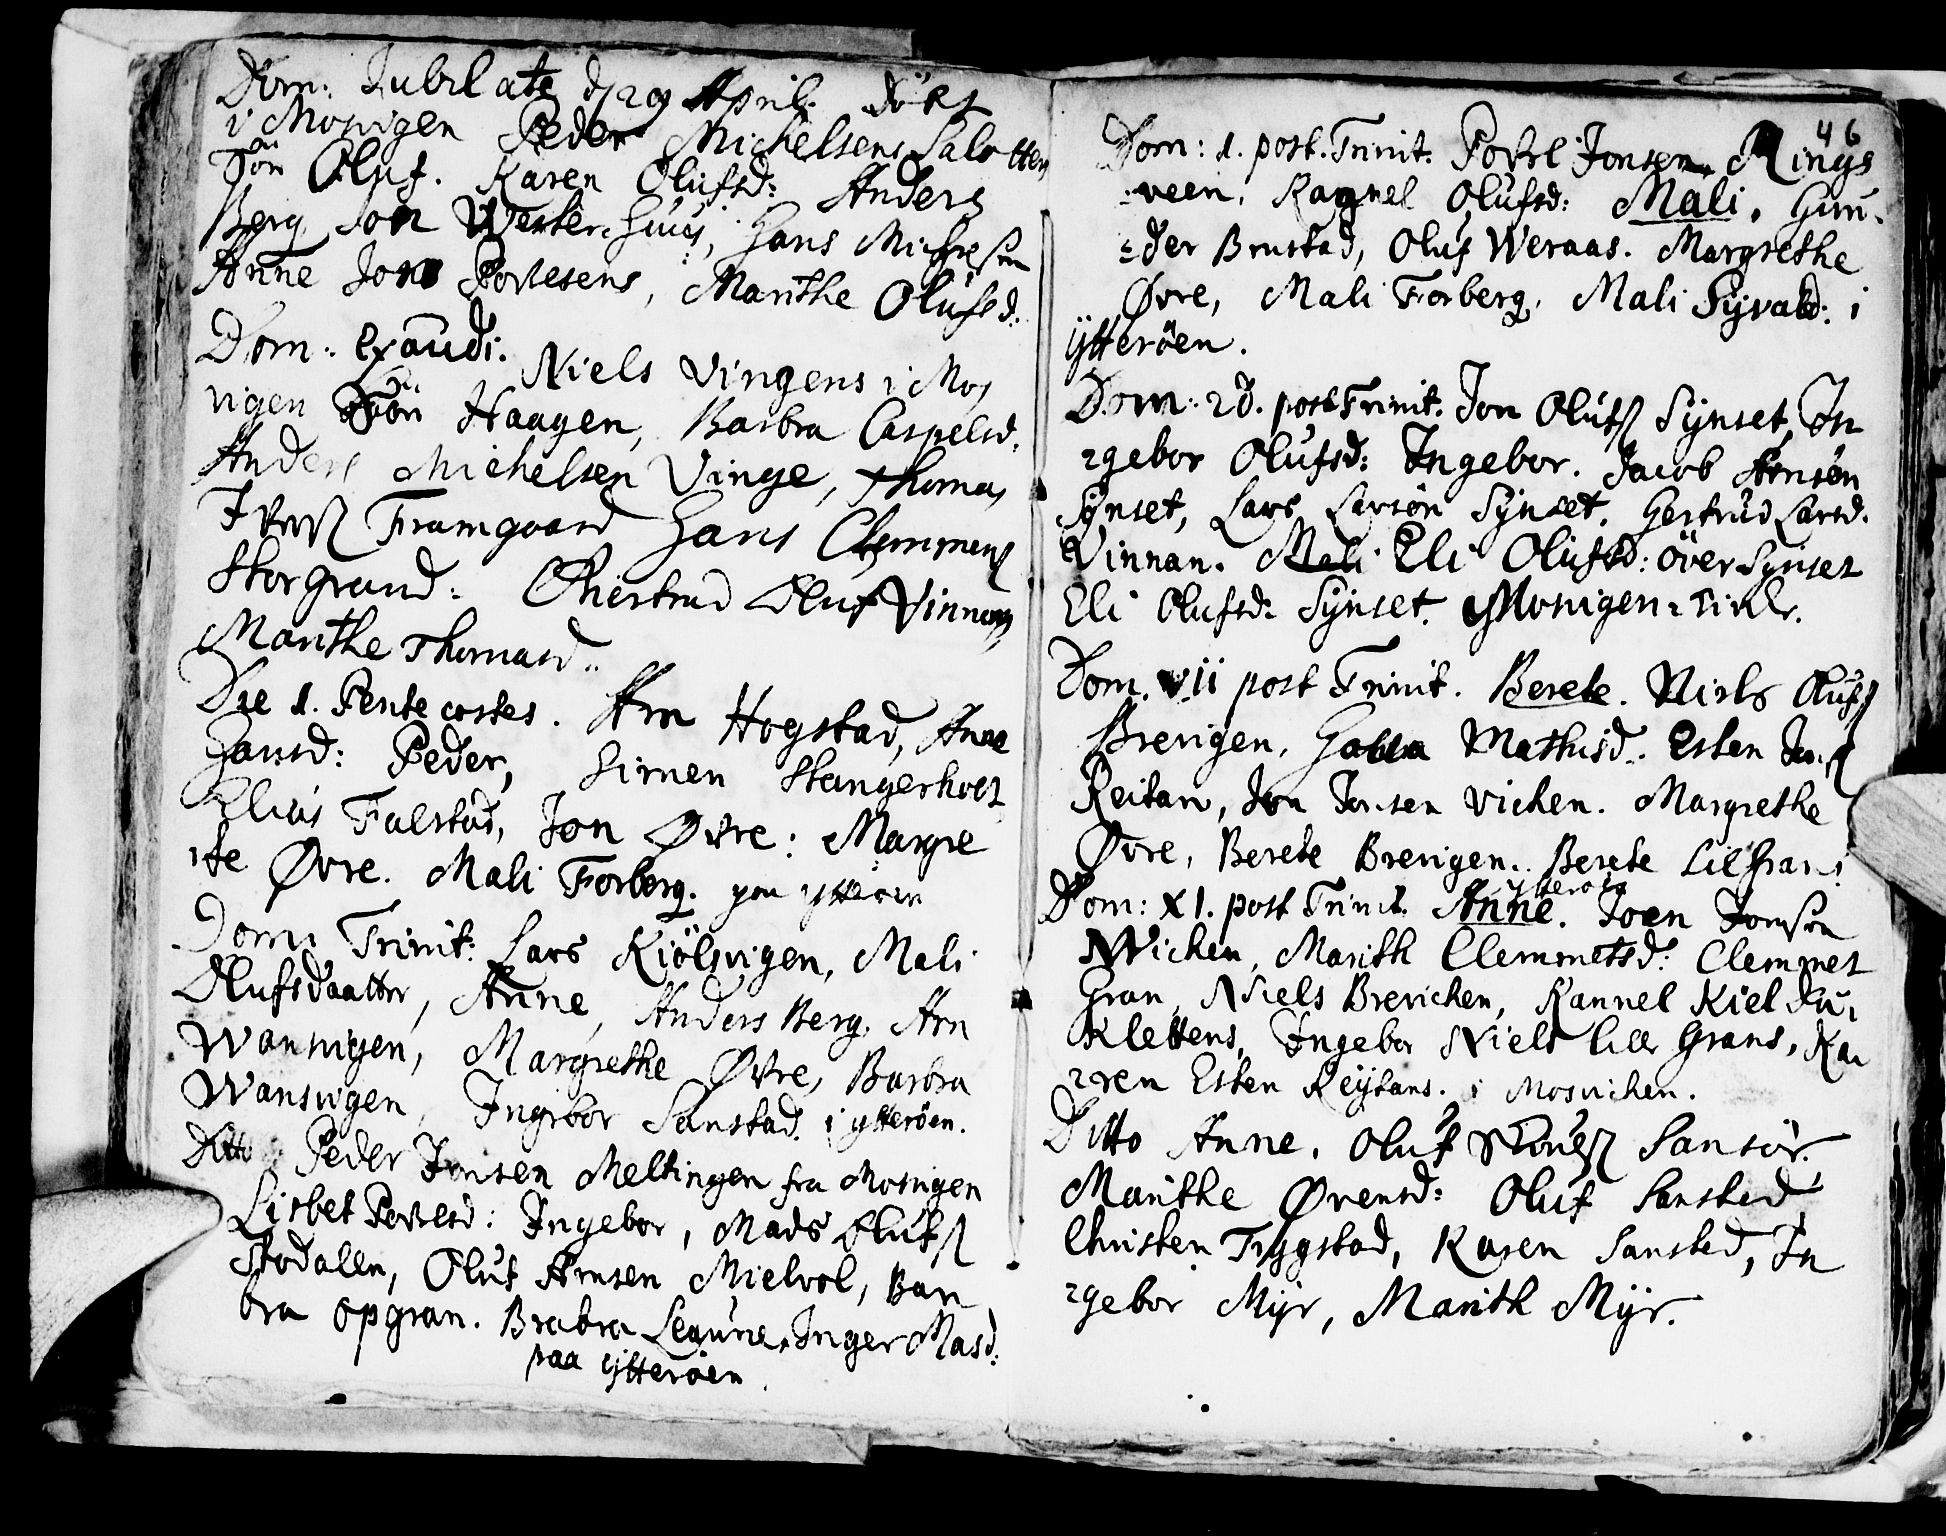 Dom: Jubilate d 29 April. döbt
i Mosvigen Peder Michelsens Salotten
Sön Oluf. Karen Olufsd: Anders
Berg Jon Westerhuus, Hans Michelsen
Anne Jon Povelsens, Marithe Olufsd:
Dom: Exaudi. Niels Vingens i Mos
vigen Sön Haagen, Barbra Caspelsd.
Anders Michelsen Vinge, Thomas
Framgaard Hans Clemmens
Storgrand: Chiertrud Oluf Vinnans
Marithe Thomasd..
Die 1. Pentecostes. Arn Hogstad, Anne
Hansd: Peder, Simen Stangerholt
Elias Falstad, Jon Øvre: Margre
te Øvre. Mali Forberg. paa ytterön
Dom: Trinit: Lars Kiölsvigen, Mali
Olufsdaatter, Anne, Anders Berg, Arn
Wansvigen, Margrethe Øvre, Barbra
Wansvigen, Ingebor Sanstad. i ytteröen.
Ditto Peder Jonsen Meltingen fra Mosvigen
Lisbet Povelsd: Ingebor, Mads Olufs
Stodalen, Oluf Arnsen Mielvol, Bar
bra opgran. Brabra Leaune, Inger Masd:
paa ytteröen.
46
Dom: 1. post. Trinit. Povel Jonsen Rings
-veen, Ragnel Olufsd: Mali, Gun-
=der Brustad, Oluf Weraas. Margrethe
Øvre, Mali Forberg, Mali Syvald: i
ytteröen.
Dom: 2d. post Trinit. Jon Olufs Synset, In
=gebor Olufsd: Ingebor. Jacob Arnsen
Synset, Lars Larsön Synset, Gertrud Larsd.
Vinnan. Mali Eli Olufsd: över Synset
Eli Olufsd: Synset. Mosvigen
Dom. vii post Trinit. Berete. Niels Olufs
Brevigen, Mathisd.. Esten Jons
Reitan, Jon Jonsen vichen. Margrethe
Øvre, Berete Brevigen. Berete Lilgran i
ytteröen
Dom: XI. post Trinit. Anne. Joen Jonsen
Wichen, Marith Clemmetsd: Clemmet
Gran, Niels Brevichen, Rannel Kiel
Klettens, Ingebor Niels lille Grans, Ka
=ren Esten Reytans. i Mosvichen.
Ditto Anne. Oluf Sansör.
Marithe Ørensd: Oluf Sanstad
Christen Trygstad, Karen Sansted, In
=gebor Myr, Marith Myr.